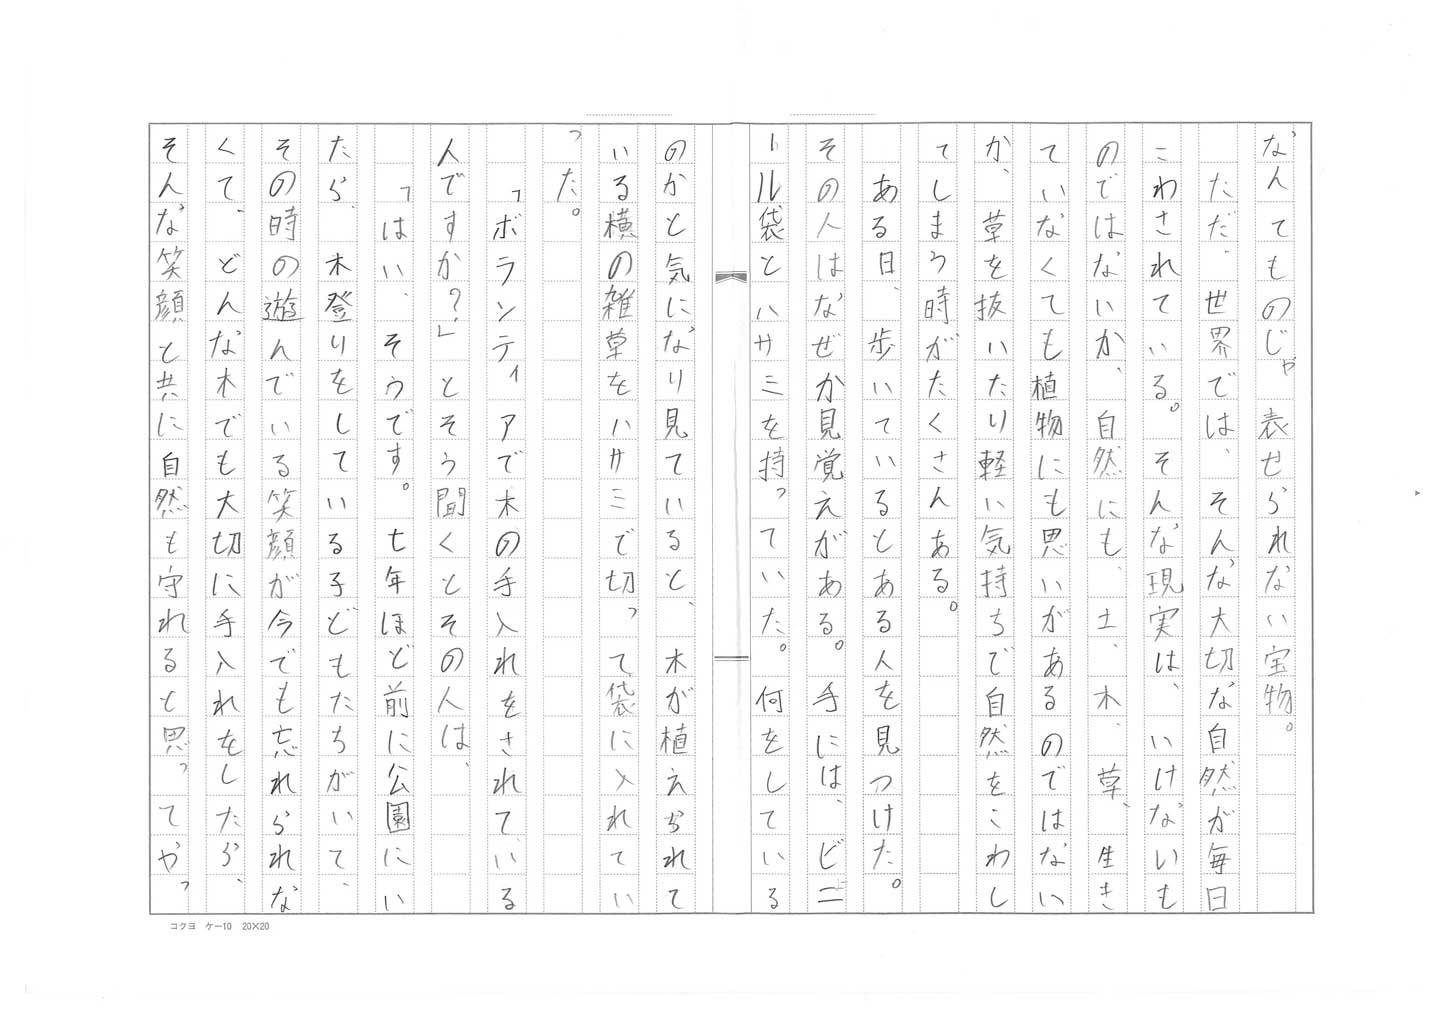 なんてものじゃ表せられない宝物。
ただ、世界では、そんな大切な自然が毎日
こわされている。そんな現実は、いけないも
のではないか、自然にも、土、木、草、生き
ていなくても植物にも思いがあるのではない
か、草を抜いたり軽い気持ちで自然をこわし
てしまう時がたくさんある。
ある日、歩いているとある人を見つけた。
その人はなぜか見覚えがある。手には、ビニ
ール袋とハサミを持っていた。何をしている
のかと気になり見ていると、木が植えられて
いる横の雑草をハサミで切って袋に入れてい
った。
「ボランティアで木の手入れをされている
人ですか?」とそう聞くとその人は、
「はい、そうです。七年ほど前に公園にい
たら、木登りをしている子どもたちがいて、
その時の遊んでいる笑顔が今でも忘れられな
くて、どんな木でも大切に手入れをしたら、
そんな笑顔と共に自然も守れると思ってやっ
コクヨ ケー10 20×20